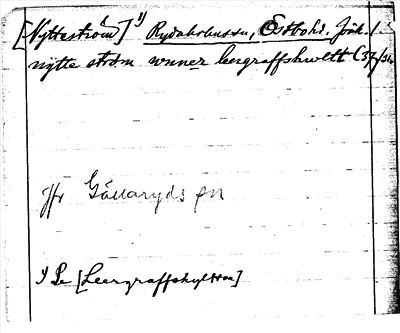 [Nytteström] 1) Rydaholms sn, Östbohd. Jönk. l.
nytte ström unner leergraffshwltt (37/
Jfr Gällaryds sn
1) Se [Leergraffshyltan]